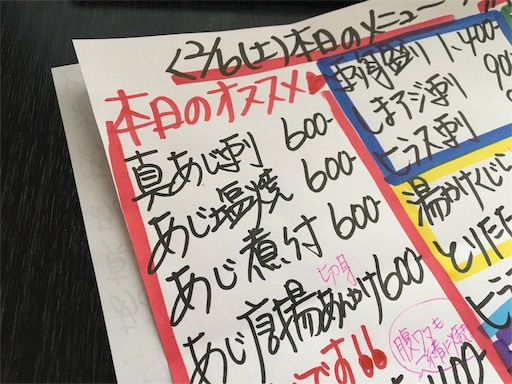 <2/6(土)本日のメニュー
本日のオススメ
真あじ刺 600-
あじ塩焼 600
あじ煮付 600-
切身
あじ唐揚あんかけ600-
です!!
腹ワタも
一緒に焼き
400-
盛り 1,400-
しまアジ刺 90
ヒラス刺
湯かけくじ
とりたた
ヒラ